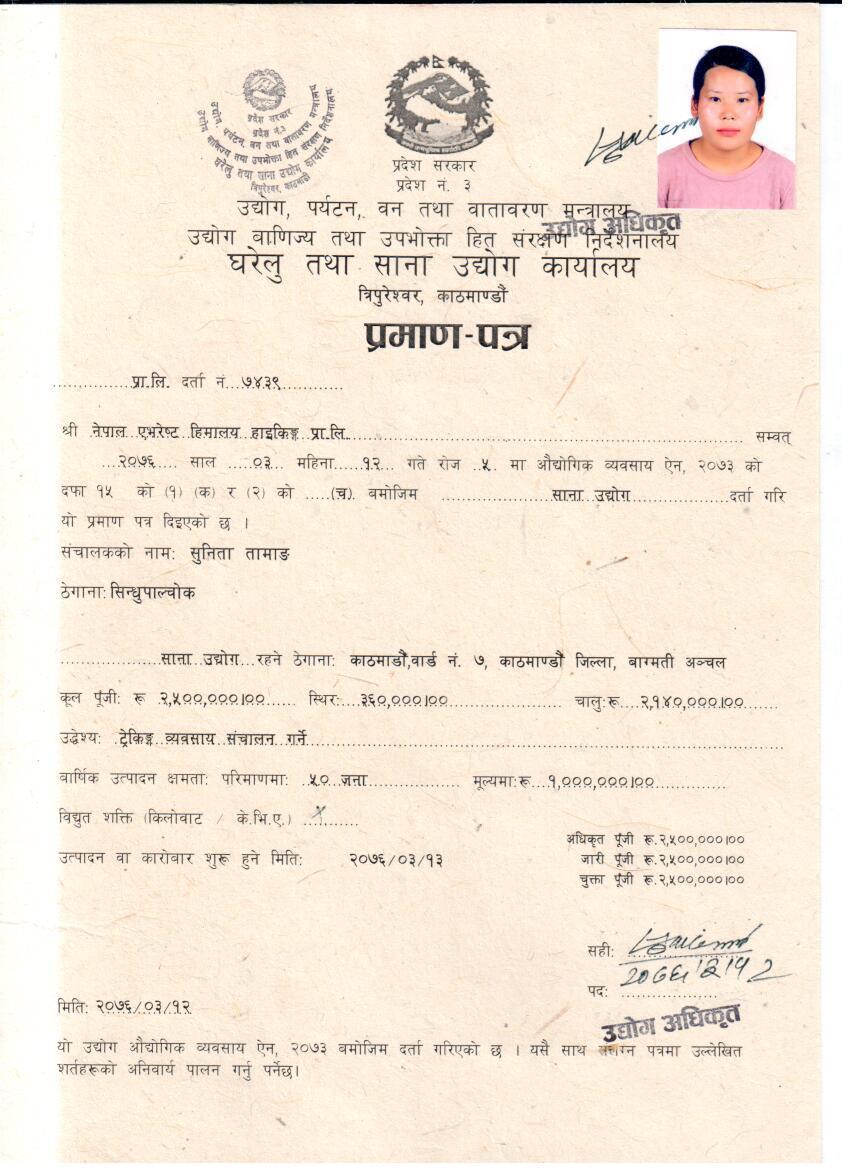 प्रदेश सरकार
प्रदेश नं. ३
उद्योग, पर्यटन, वन तथा वातावरण मन्त्रालय
घरेलु तथा साना उद्योग कार्यालय
त्रिपुरेश्वर, काठमाडौं
प्रदेश सरकार
प्रदेश नं. ३
उद्योग, पर्यटन, वन तथा वातावरण मन्त्रालय
उद्योग अधिकृत
उद्योग वाणिज्य तथा उपभोक्ता हित संरक्षण निर्देशनालय
घरेलु तथा साना उद्योग कार्यालय
त्रिपुरेश्वर, काठमाण्डौं
प्रमाण-पत्र
..............प्रा.लि. दर्ता नं...७४३९.............
श्री नेपाल एभरेष्ट हिमालय हाइकिङ्ग प्रा.लि................ सम्वत्
...२०७६... साल ....०३... महिना.....१२... गते रोज ..५. मा औद्योगिक व्यवसाय ऐन, २०७३ को
दफा १५ को (१) (क) र (२) को .....(च). बमोजिम ................साना उद्योग................दर्ता गरि
यो प्रमाण पत्र दिइएको छ ।
संचालकको नाम: सुनिता तामाङ
ठेगाना: सिन्धुपाल्चोक
..................साना उद्योग...रहने ठेगाना: काठमाडौं,वार्ड नं. ७, काठमाण्डौं जिल्ला, बाग्मती अञ्चल
कूल पूंजी: रू २,५००,०००।००...... स्थिर:...३६०,०००।००................ चालु:रू....२,१४०,०००।००.....
उद्धेश्य: ट्रेकिङ्ग व्यवसाय संचालन गर्ने................
वार्षिक उत्पादन क्षमता: परिमाणमा: ..५० जना................ मूल्यमा:रू...१,०००,०००।००............
विद्युत शक्ति (किलोवाट / के.भि.ए.) ...x......
अधिकृत पूंजी रू.२,५००,०००।००
जारी पूंजी रू.२,५००,०००।००
चुक्ता पूंजी रू.२,५००,०००।००
उत्पादन वा कारोबार शुरू हुने मिति: २०७६/०३/१३
सही:
२०७६।३।१२
पद: ..................
उद्योग अधिकृत
मिति: २०७६/०३/१२
यो उद्योग औद्योगिक व्यवसाय ऐन, २०७३ बमोजिम दर्ता गरिएको छ । यसै साथ संलग्न पत्रमा उल्लेखित
शर्तहरूको अनिवार्य पालन गर्नु पर्नेछ।